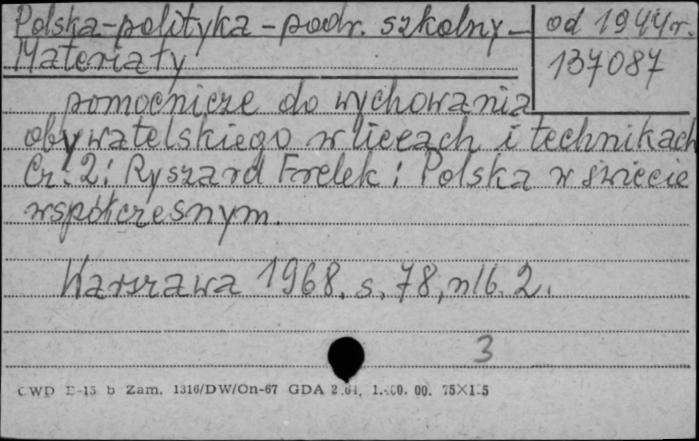 Polska-polityka-podr. szkolny- od 1944r.
Materiały
137087
pomocnicze do wychowania
obywatelskiego w liceach i technikach
Cz. 2: Ryszard Frelek: Polska w świecie
współczesnym.
Warszawa 1968, s. 78, nlb. 2.
3
CWD 13 b Zam. 1316/DW/On-67 GDA